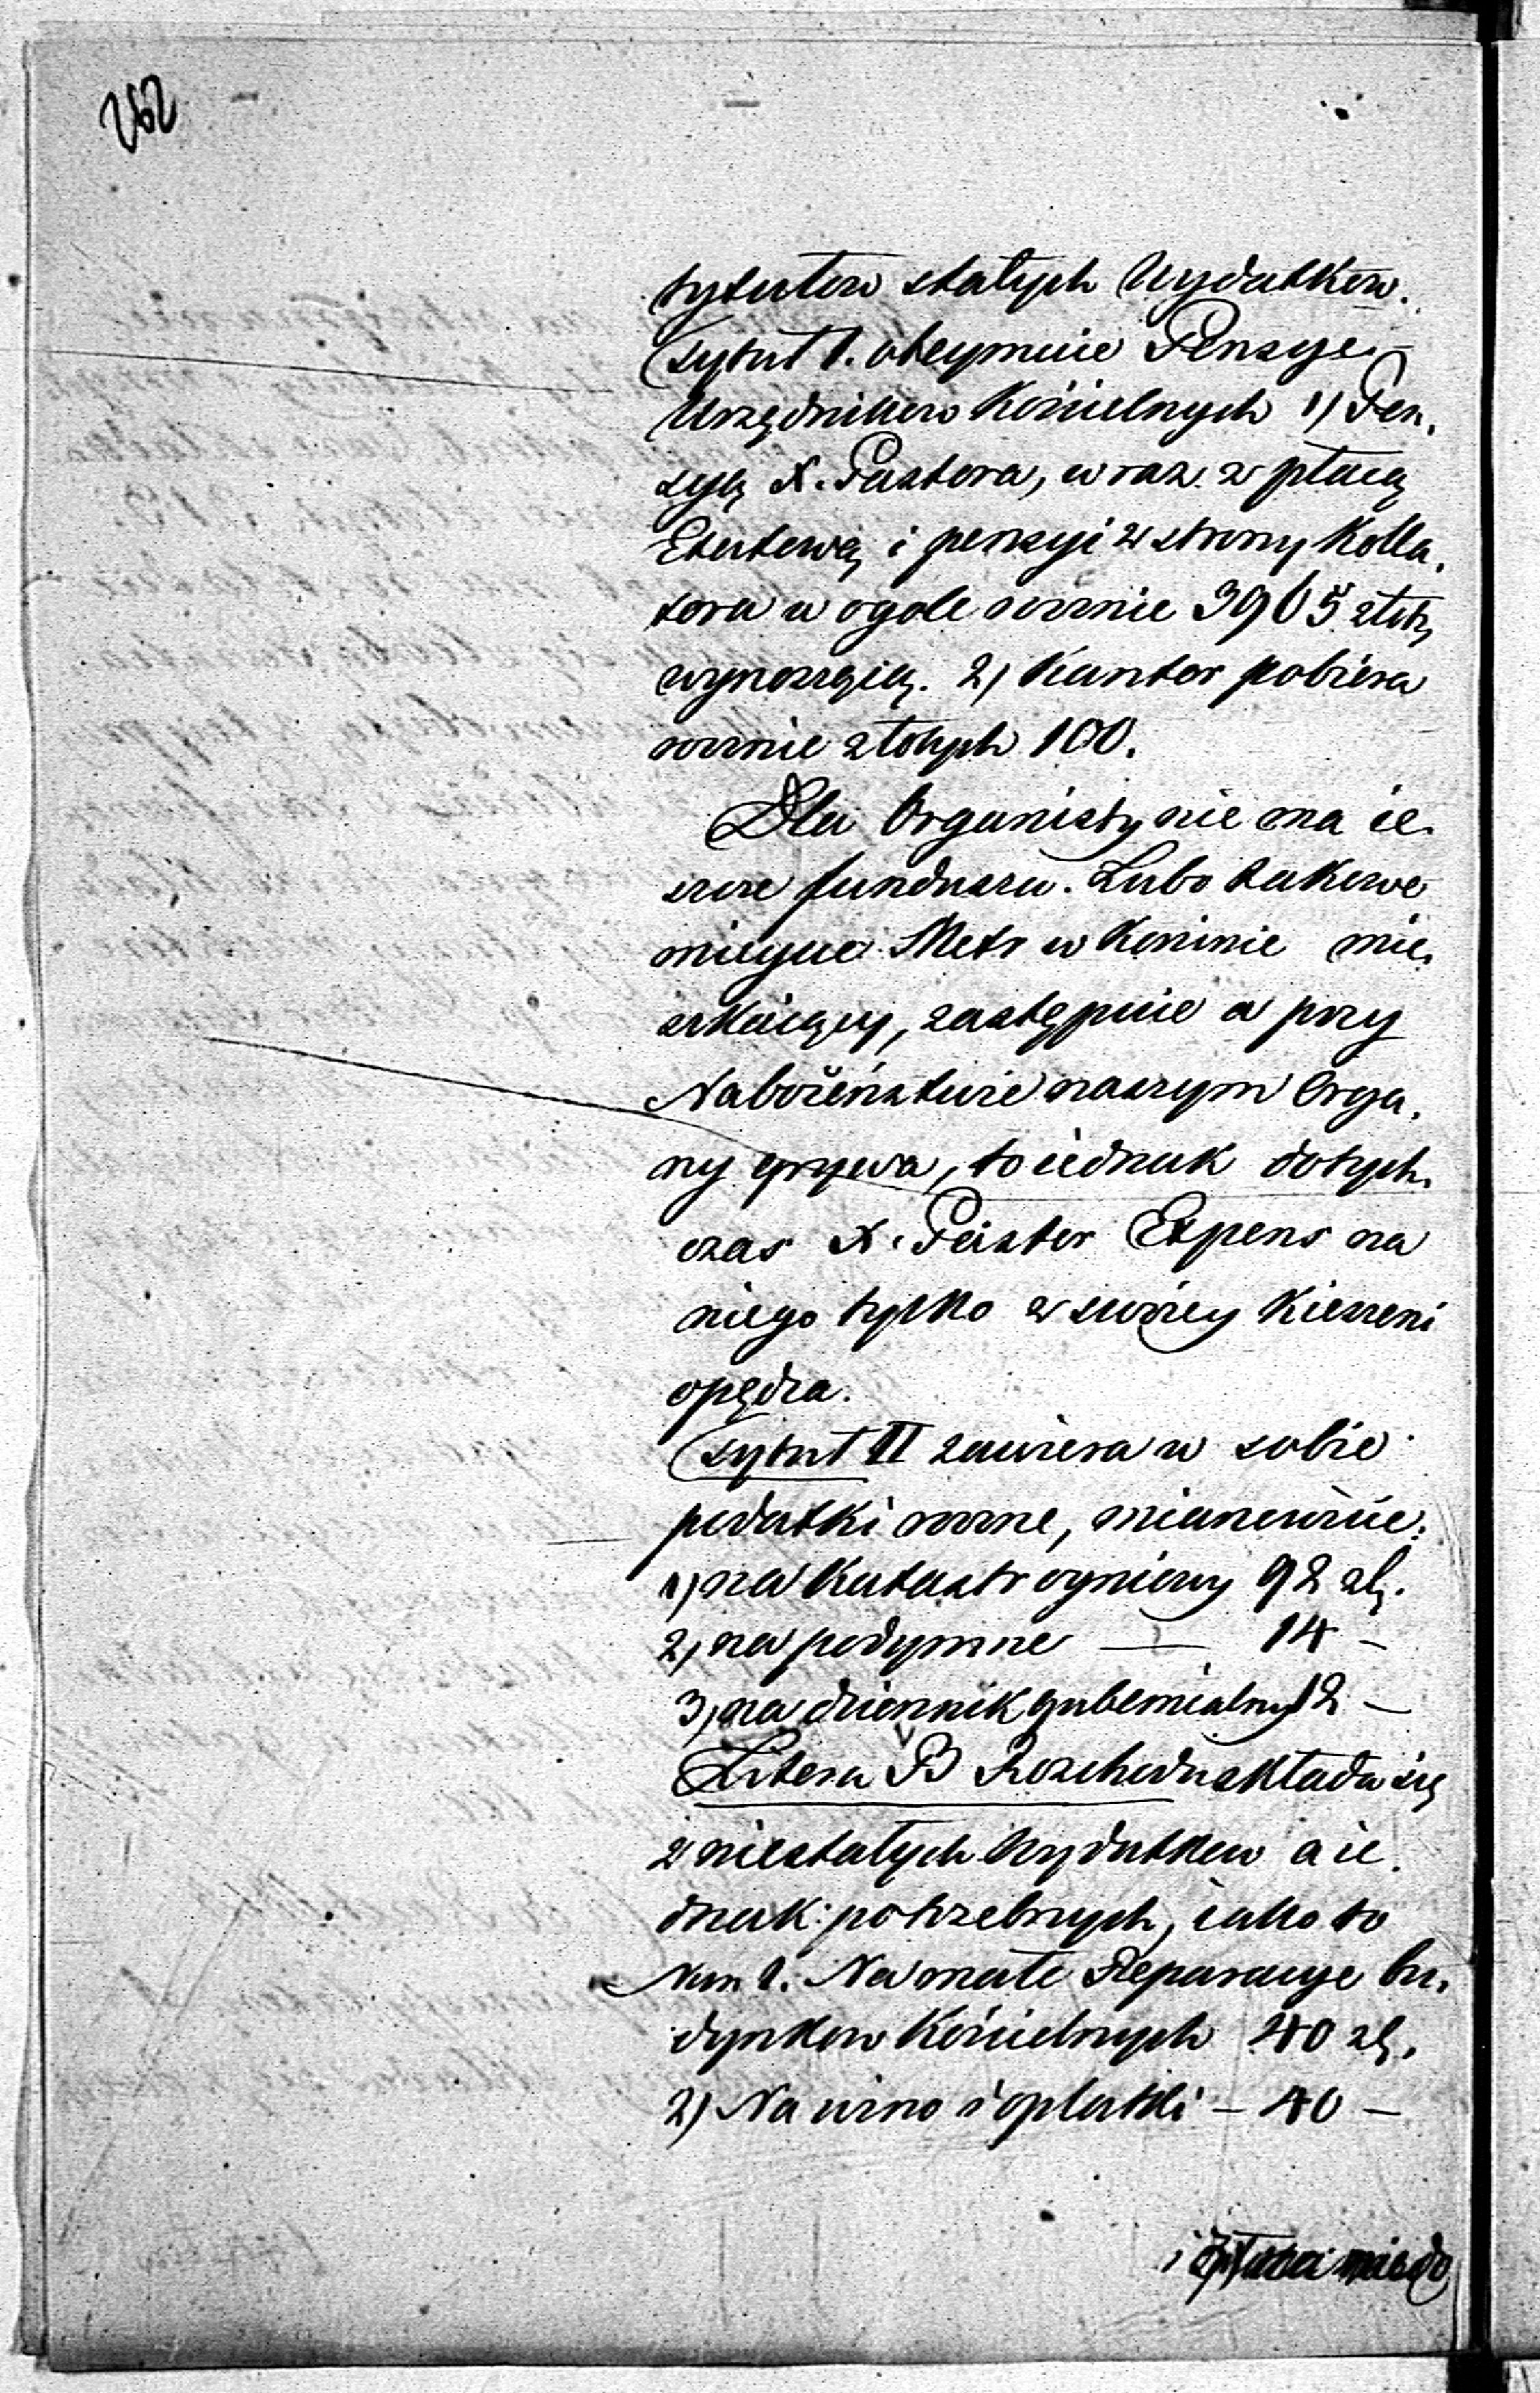 262
tytułów stałych Wydatków.
Tytuł I. obeymuie Pensye
Urzędników Kościelnych 1) Pen,
syą X. Pastora, wraz z płacą
Etatową i pensyi z strony Kolla,
tora w ogole rocznie 3965 złotz
wynoszącą. 2) Kantor pobiera
rocznie złotych 100.
Dla Organisty nie ma ie,
szcze funduszu. Lubo takowe
mieysce Metr w Koninie mie,
szkaiący, zastępuie a przy
Nabożeństwie naszym Orga,
ny grywa, to iednak dotych,
czas X. Pastor Expens na
niego tylko z swoiey Kieszeni
opędza.
Tytuł II zawiera w sobie
podatki roczne, mianowicie:
1) na Katastr ogniowy 92 zł.
2) na podymne — 14 -
3) na dziennik gubernialny 12 —
Litera B Rozchodu składa się
z niestałych Wydatków a ie,
dnak potrzebnych, iako to
Num 1. Na małe Reparacye bu,
dynków Kościelnych 40 zł.
2) Na wino i opłatki - 40 —